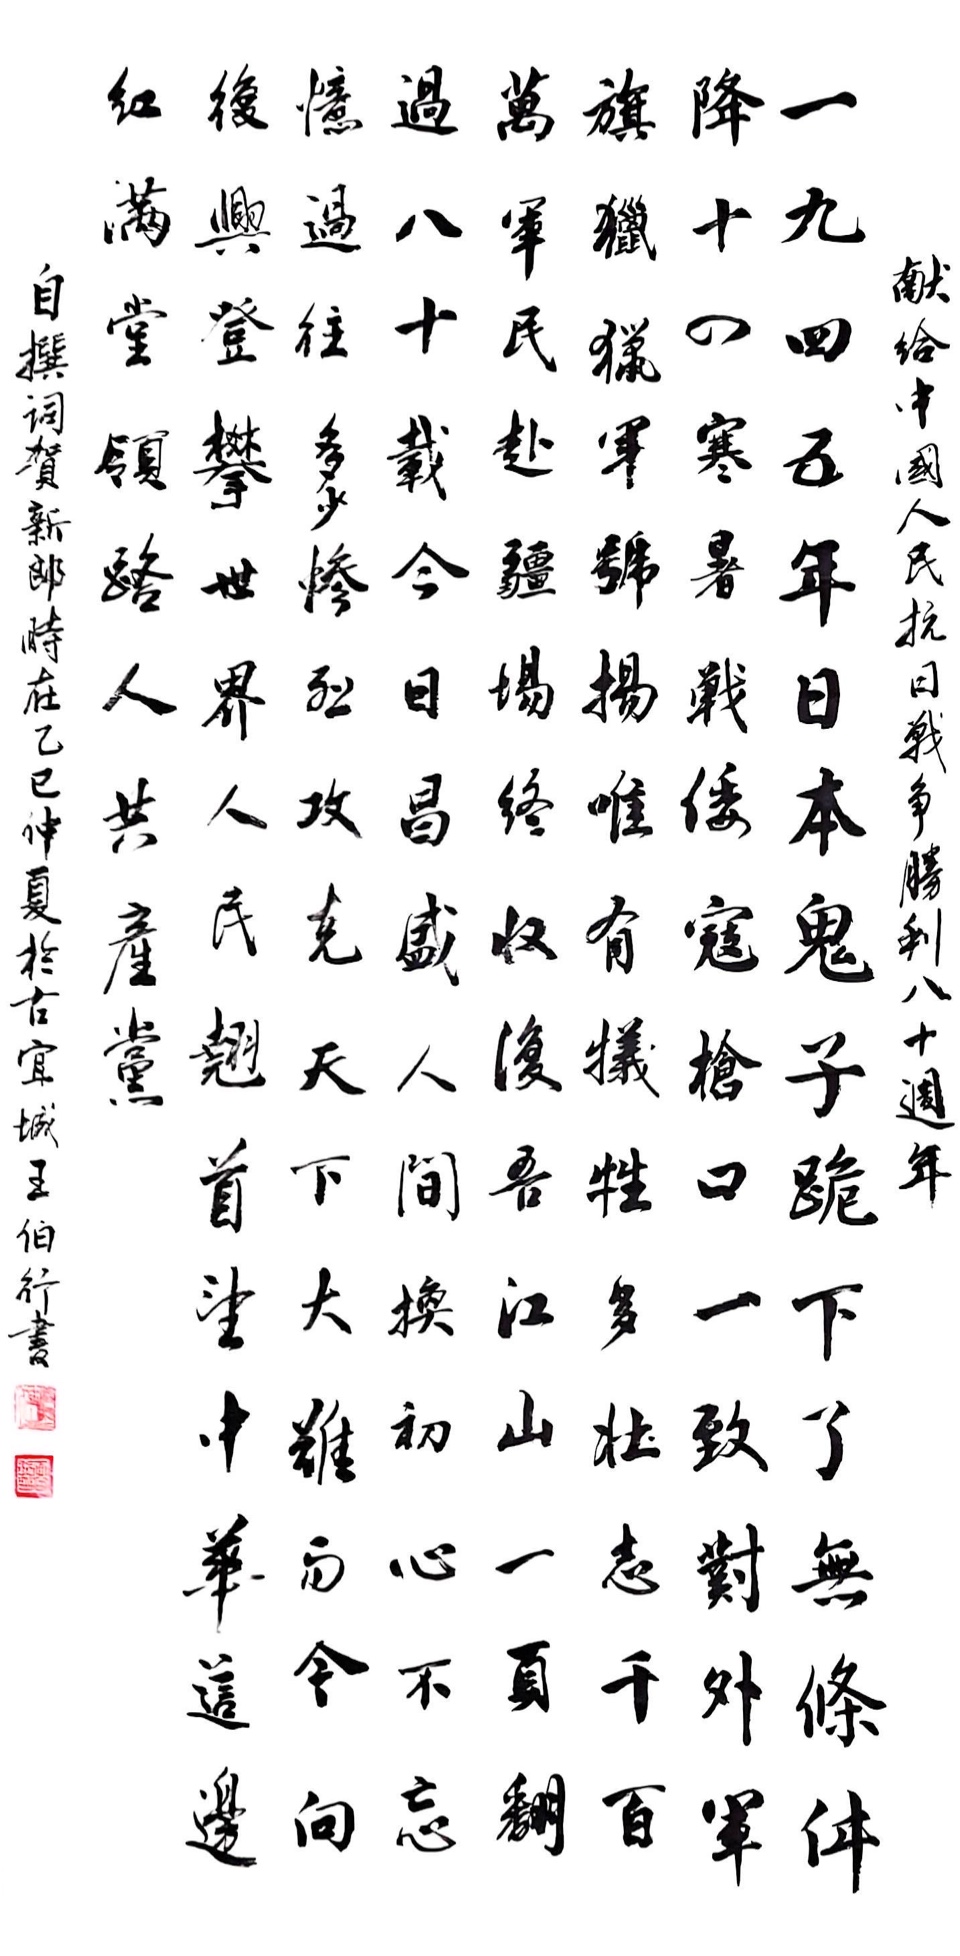 献给中國人民抗日戰争勝利八十週年
一九四五年日本鬼子跪下了無條件
降十四寒暑戰倭寇槍口一致對外軍
旗獵獵軍號揚唯有犧牲多壯志千百
萬軍民赴疆場終收復吾江山一頁翻
過八十載今日昌盛人間換初心不忘
憶過往多少慘烈攻克天下大難而今向
復興登攀世界人民翹首望中華這邊
紅满堂領路人共產黨
自撰词贺新郎時在乙巳仲夏於古宜城王伯行書